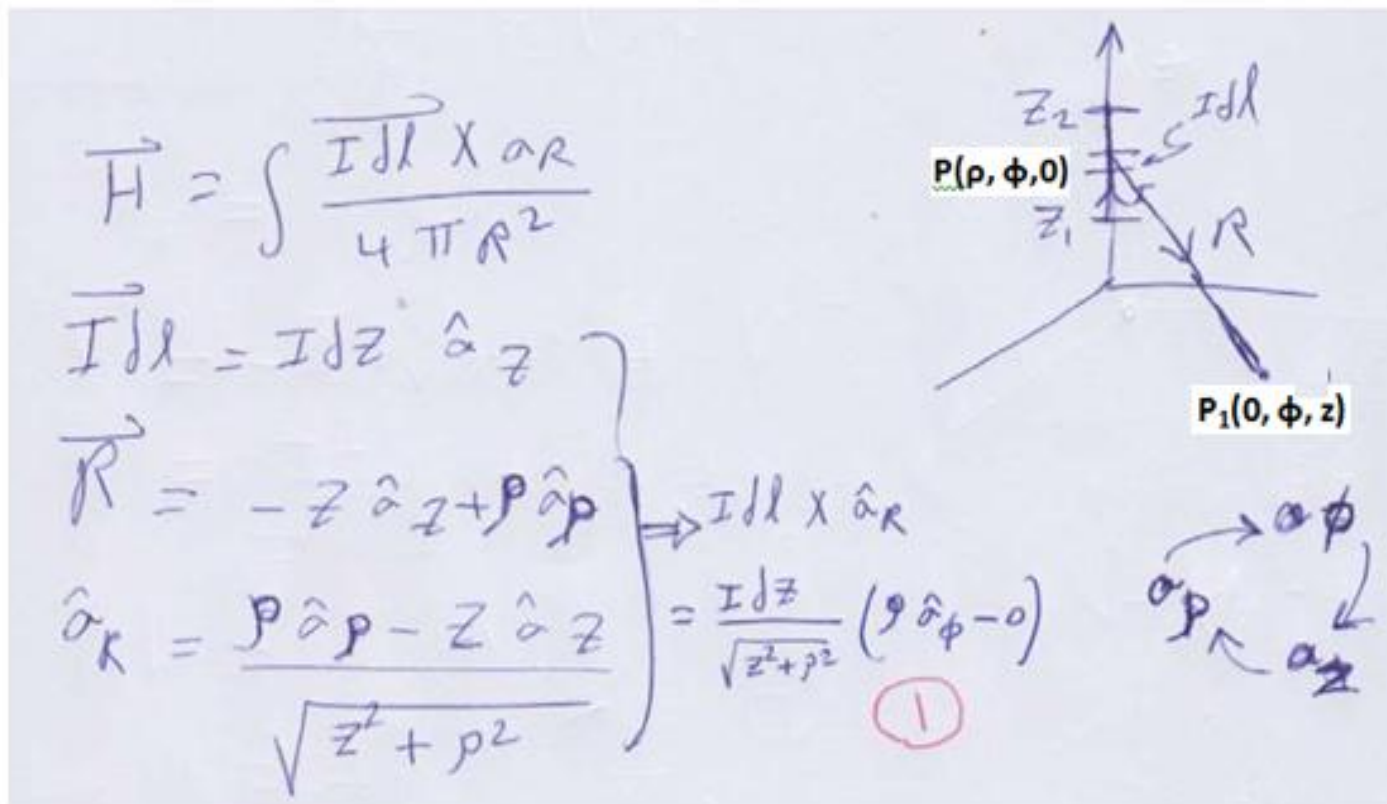 H⃗ = ∫ I⃗dl × aR / 4πR²
I⃗dl = Idz â_z
R⃗ = -z â_z + ρ â_ρ
â_R = (ρ â_ρ - z â_z) / √(z² + ρ²)
⇒ Idl × â_R
= Idz / √(z² + ρ²) (ρ â_φ - 0)
1
Z₂
Idl
P(ρ, φ,0)
Z₁
R
P₁(0, φ, z)
aφ
aρ
az